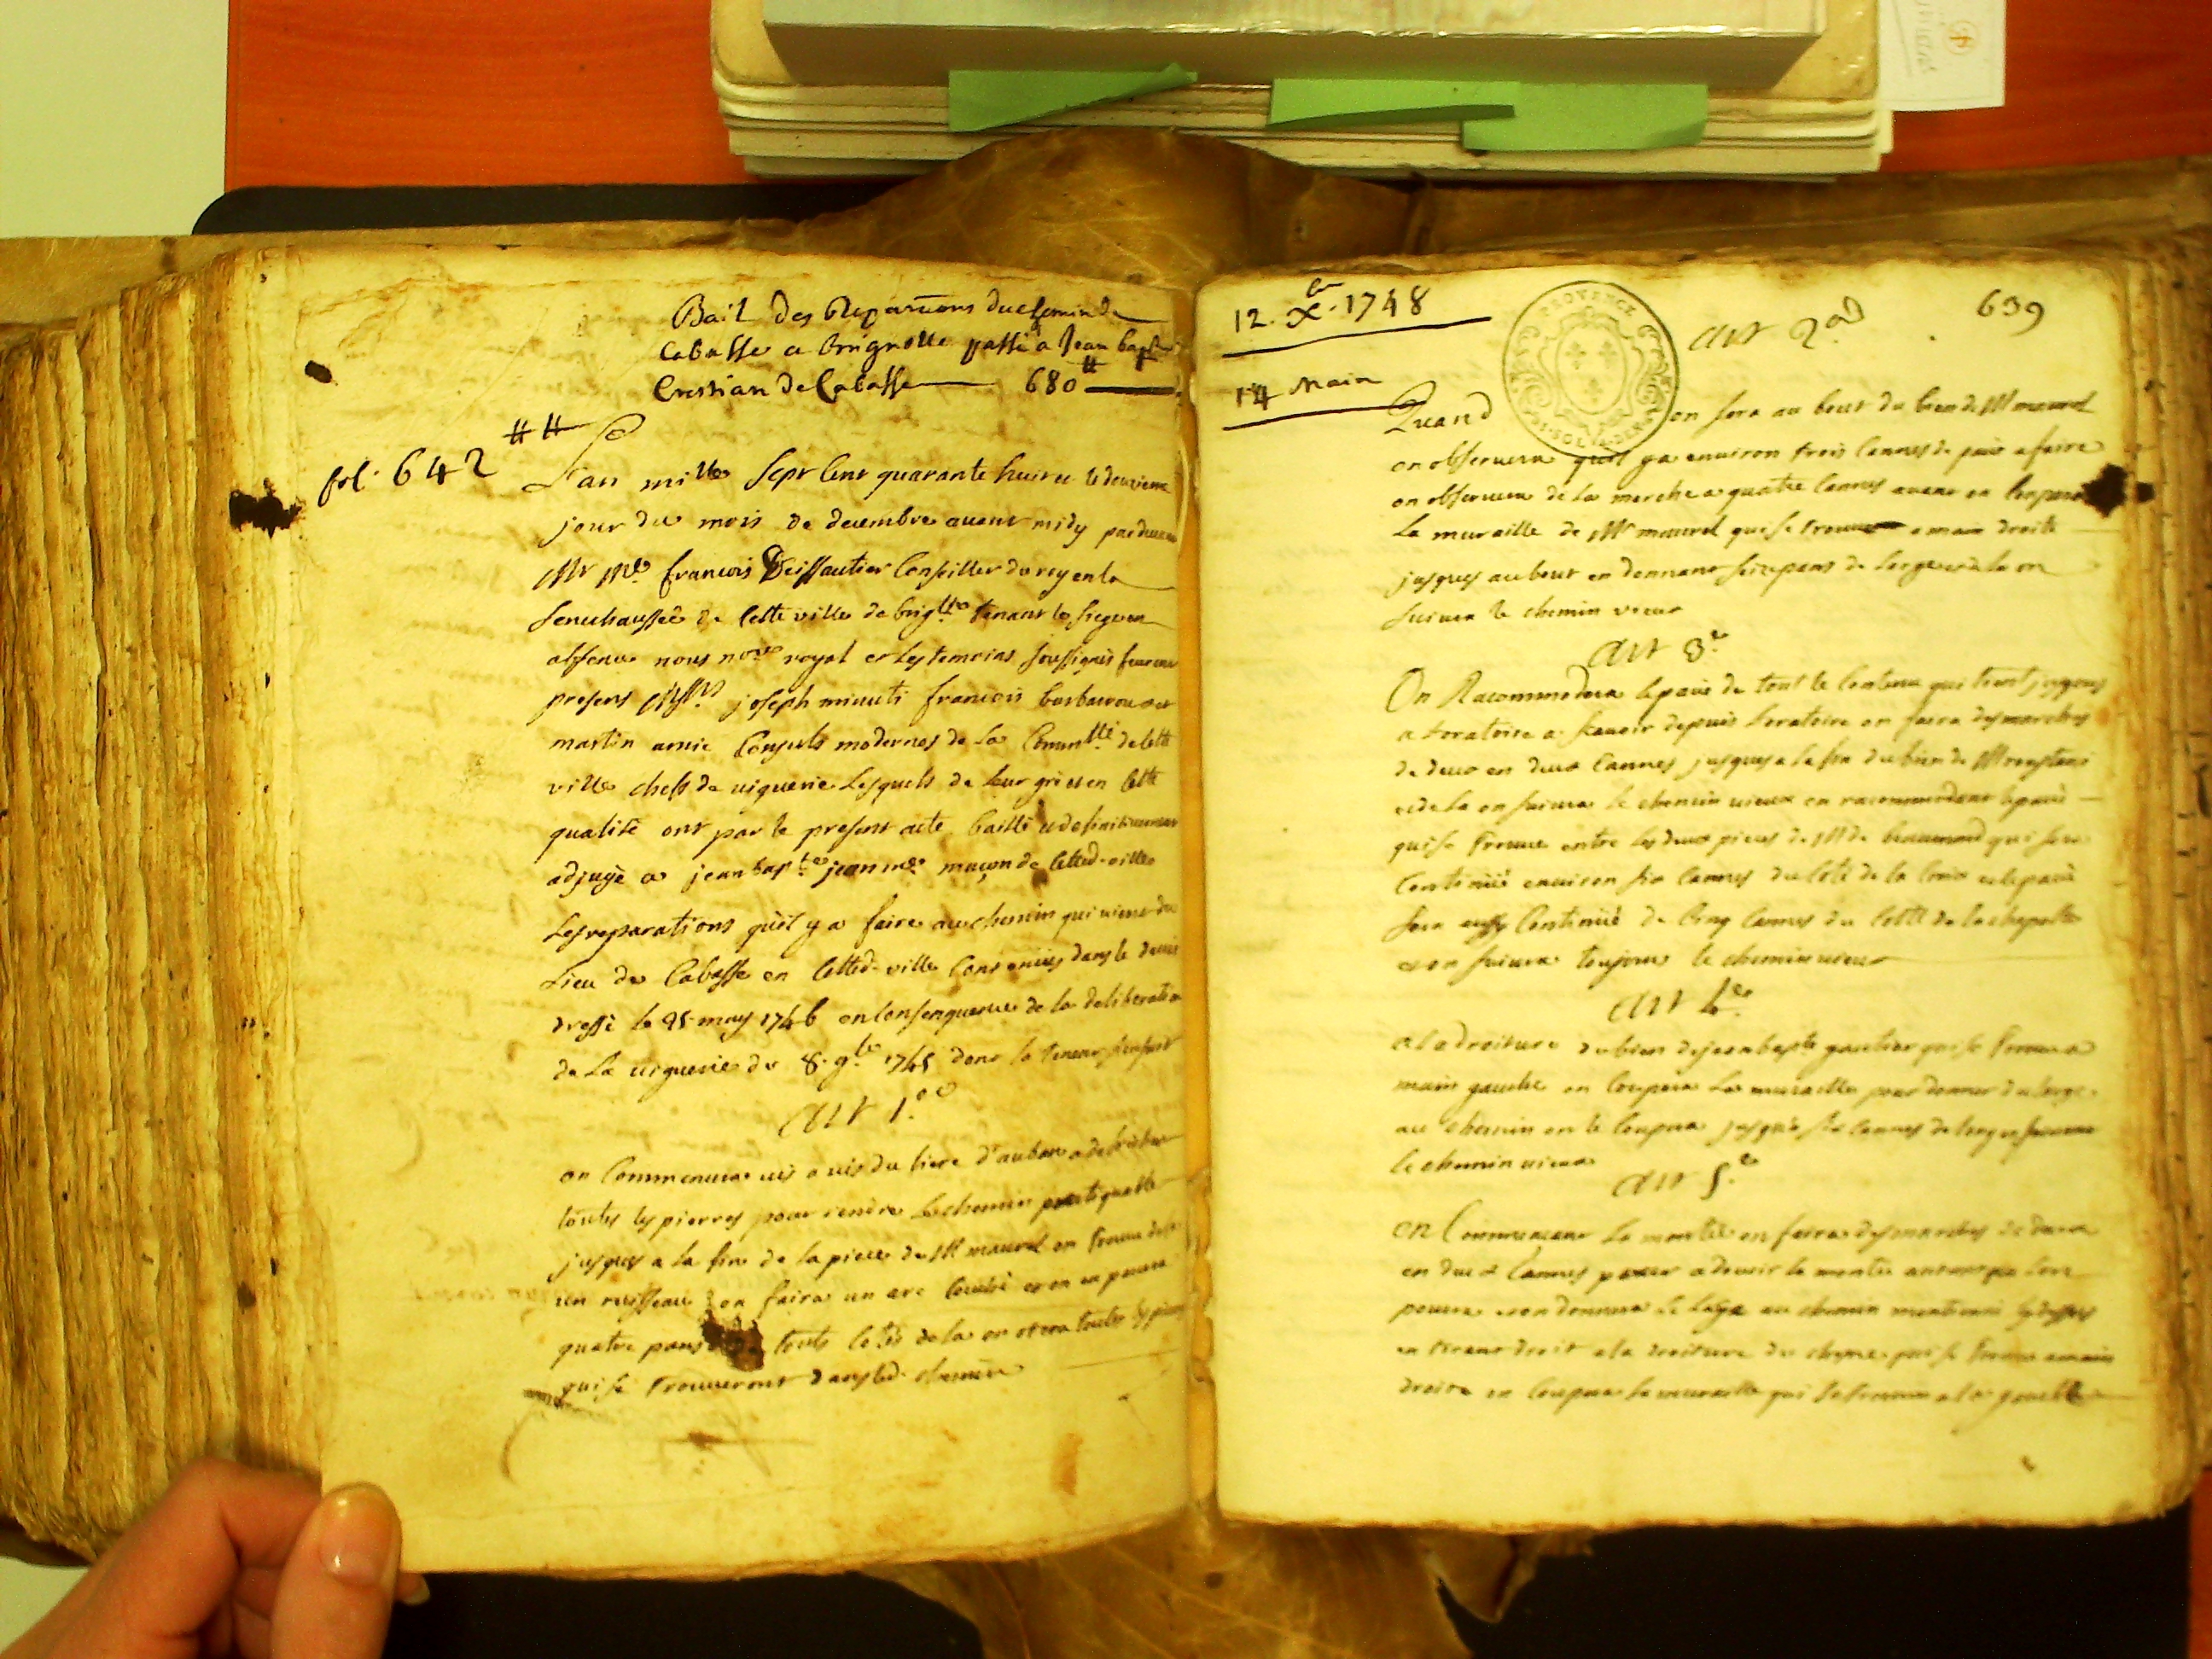 Bail des Reparaõns du chemin de
Cabasse a brignolle passé a Jean bapte
Crestian de Cabasse 680 ₶
fol. 642
L'an mille sept cent quarante huit et le douzieme
jour du mois de decembre avant midy pardevant
Mr Me françois Deissautier Conseiller du roy en la
senechaussée de cette ville de briglle tenant le siege en
absence nous nore royal et les temoins soussignés furent
presens Messrs joseph minuti francois barbaroux et
martin amic Consuls modernes de la Commté de cette
ville chefs de viguerie Lesquels de leur gré et en cette
qualité ont par le present acte baillé et definitivement
adjugé a jean bapte jean me maçon de cetted. ville
Les reparations qu'il y a faire au chemin qui vient du
Lieu de Cabasse en cetted. ville Contenües dans le devis
dressé le 25 may 1746 en Consequence de la deliberation
de La viguerie du 8. 9bre 1745 dont la teneur sensuit
art 1.er
on Commencera vis a vis du
toutes les pierres pour rendre Le chemin pratiquable
jusques a la fin de la piece de Mr maurel on trouve
un ruisseau on faira un arc et on en pavera
quatre pans touts cotés de la on otera toutes les pierres
qui se trouveront dans led. chemin
12. Xbre. 1748
14 Main
639
PROVENCE
art 2.nd
Quand on sera au bout du bien de Mr maurel
on observera quil y a environ trois Cannes de pavé a faire
on observera de la marche a quatre Cannes avant
La muraille de Mr maurel qui se trouve a main droite
jusques au bout en donnant seize pans de largeur de la on
suivra le chemin vieux
art 3.e
On Racommodera le pavé de tout le Contenu qui tient jusques
a Loratoire a scavoir depuis Loratoire on faira des marches
de deux en deux Cannes jusques a la fin du bien de Mr
et de la on suivra le chemin vieux en racommodant le pavé
qui se trouve entre les deux pieces de Mr de beaumond qui sera
Continué environ six Cannes du coté de la et le pavé
sera aussy Continué de Cinq Cannes du Cotté de la chapelle
et on suivra toujours le chemin vieux
art 4.e
a la droiture du bien de jean bapte gautier qui se trouve a
main gauche on Coupera La muraille pour donner du large
au chemin on le Coupera jusqu'a six Cannes de long et suivra
le chemin vieux
art 5.e
En Commencant La montée on faira des marches de deux
en deux Cannes pour adoucir la montée autant que lon
pourra et on donnera de Large au chemin mentionné cy dessus
en tirant droit a la droiture du chesne qui se trouve a main
droite on Coupera la muraille qui se trouve a la gauche